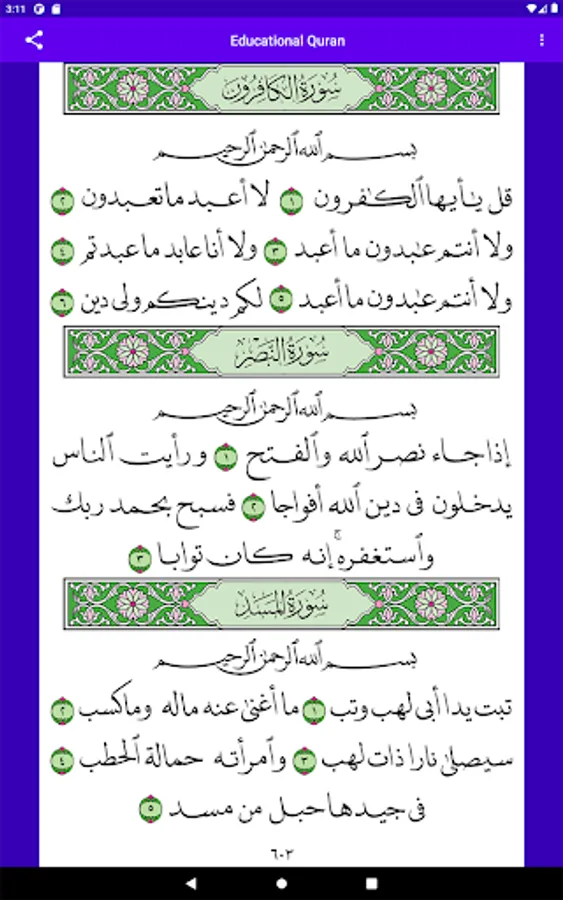 3:11
Educational Quran
سورة الكافرون
بسم ٱلله ٱلرحمن ٱلرحيم
قل يٰأيها ٱلكٰفرون ١ لا أعبد ما تعبدون ٢
ولا أنتم عٰبدون ما أعبد ٣ ولا أنا عابد ما عبدتم ٤
ولا أنتم عٰبدون ما أعبد ٥ لكم دينكم ولى دين ٦
سورة النصر
بسم ٱلله ٱلرحمن ٱلرحيم
إذا جاء نصر ٱلله وٱلفتح ١ ورأيت ٱلناس
يدخلون فى دين ٱلله أفواجا ٢ فسبح بحمد ربك
وٱستغفرهۚ إنه كان توابا ٣
سورة المسد
بسم ٱلله ٱلرحمن ٱلرحيم
تبت يدا أبى لهب وتب ١ ما أغنىٰ عنه ماله وما كسب ٢
سيصلىٰ نارا ذات لهب ٣ وٱمرأته حمالة ٱلحطب ٤
فى جيدها حبل من مسد ٥
٦٠٣